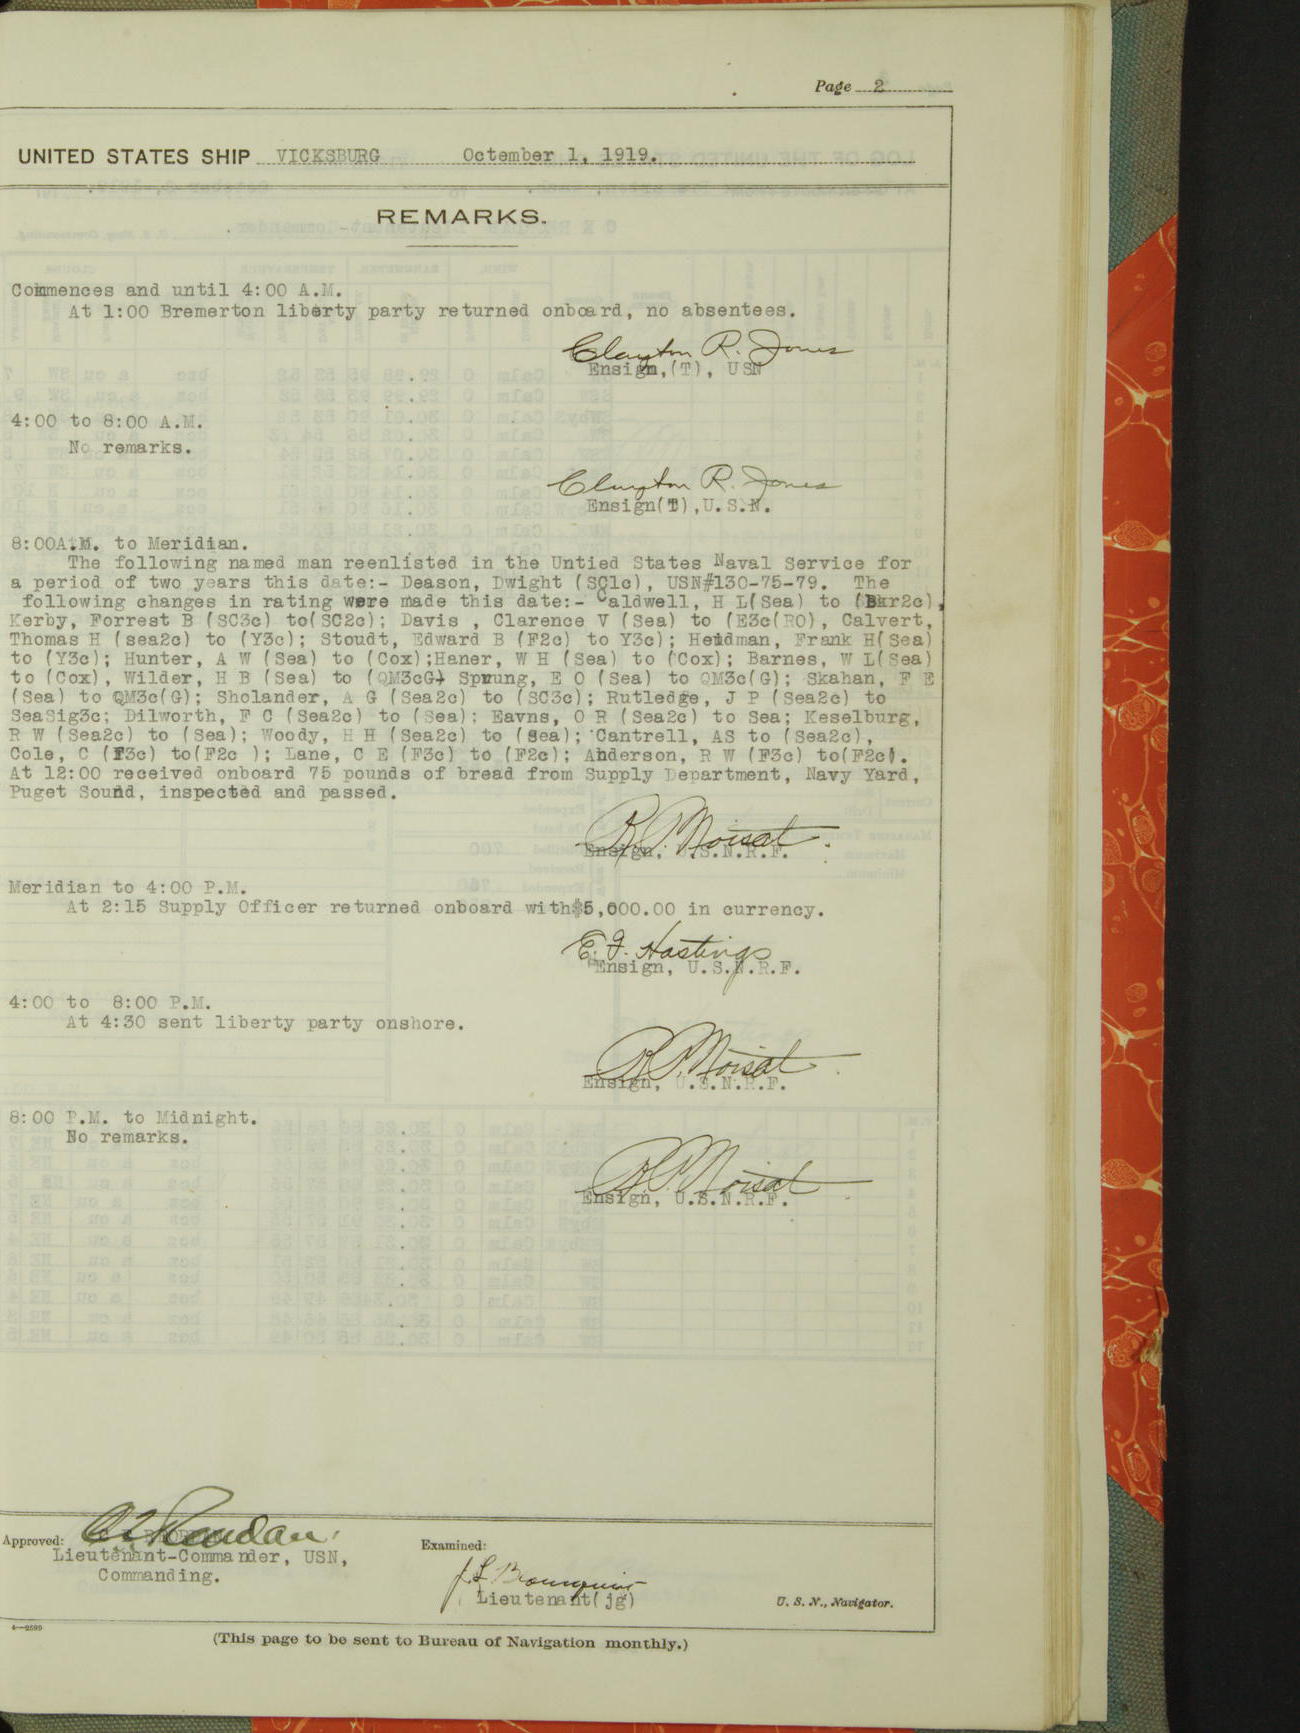 Page 2
UNITED STATES SHIP VICKSBURG Octember 1, 1919.
REMARKS.
Commences and until 4:00 A.M.
At 1:00 Bremerton liberty party returned onboard, no absentees.
Clayton R. Jones
Ensign,(T), USN
4:00 to 8:00 A.M.
No remarks.
Clayton R. Jones
Ensign(T),U.S.N.
8:00A.M. to Meridian.
The following named man reenlisted in the Untied States Naval Service for
a period of two years this date:- Deason, Dwight (SC1c), USN#130-75-79. The
following changes in rating were made this date:- Caldwell, H L(Sea) to (Bkr2c),
Kerby, Forrest B (SC3c) to(SC2c); Davis , Clarence V (Sea) to (E3c(RO), Calvert,
Thomas H (sea2c) to (Y3c); Stoudt, Edward B (F2c) to Y3c); Heidman, Frank H(Sea)
to (Y3c); Hunter, A W (Sea) to (Cox);Haner, W H (Sea) to (Cox); Barnes, W L(Sea)
to (Cox), Wilder, H B (Sea) to (QM3cG) Sprung, E O (Sea) to QM3c(G); Skahan, F E
(Sea) to QM3c(G); Sholander, A G (Sea2c) to (SC3c); Rutledge, J P (Sea2c) to
SeaSig3c; Dilworth, F C (Sea2c) to (Sea); Eavns, O R (Sea2c) to Sea; Keselburg,
R W (Sea2c) to (Sea); Woody, H H (Sea2c) to (Sea); Cantrell, AS to (Sea2c),
Cole, C (F3c) to(F2c ); Lane, C E (F3c) to (F2c); Anderson, R W (F3c) to(F2c).
At 12:00 received onboard 75 pounds of bread from Supply Department, Navy Yard,
Puget Sound, inspected and passed.
R.P. Moisat
Ensign, U.S.N.R.F.
Meridian to 4:00 P.M.
At 2:15 Supply Officer returned onboard with$5,000.00 in currency.
E. F. Hastings
Ensign, U.S.N.R.F.
4:00 to 8:00 P.M.
At 4:30 sent liberty party onshore.
R.P. Moisat
Ensign, U.S.N.R.F.
8:00 P.M. to Midnight.
No remarks.
R.P. Moisat
Ensign, U.S.N.R.F.
Approved:
Lieutenant-Commander, USN,
Commanding.
Examined:
Lieutenant(jg) U. S. N., Navigator.
4—2599
(This page to be sent to Bureau of Navigation monthly.)